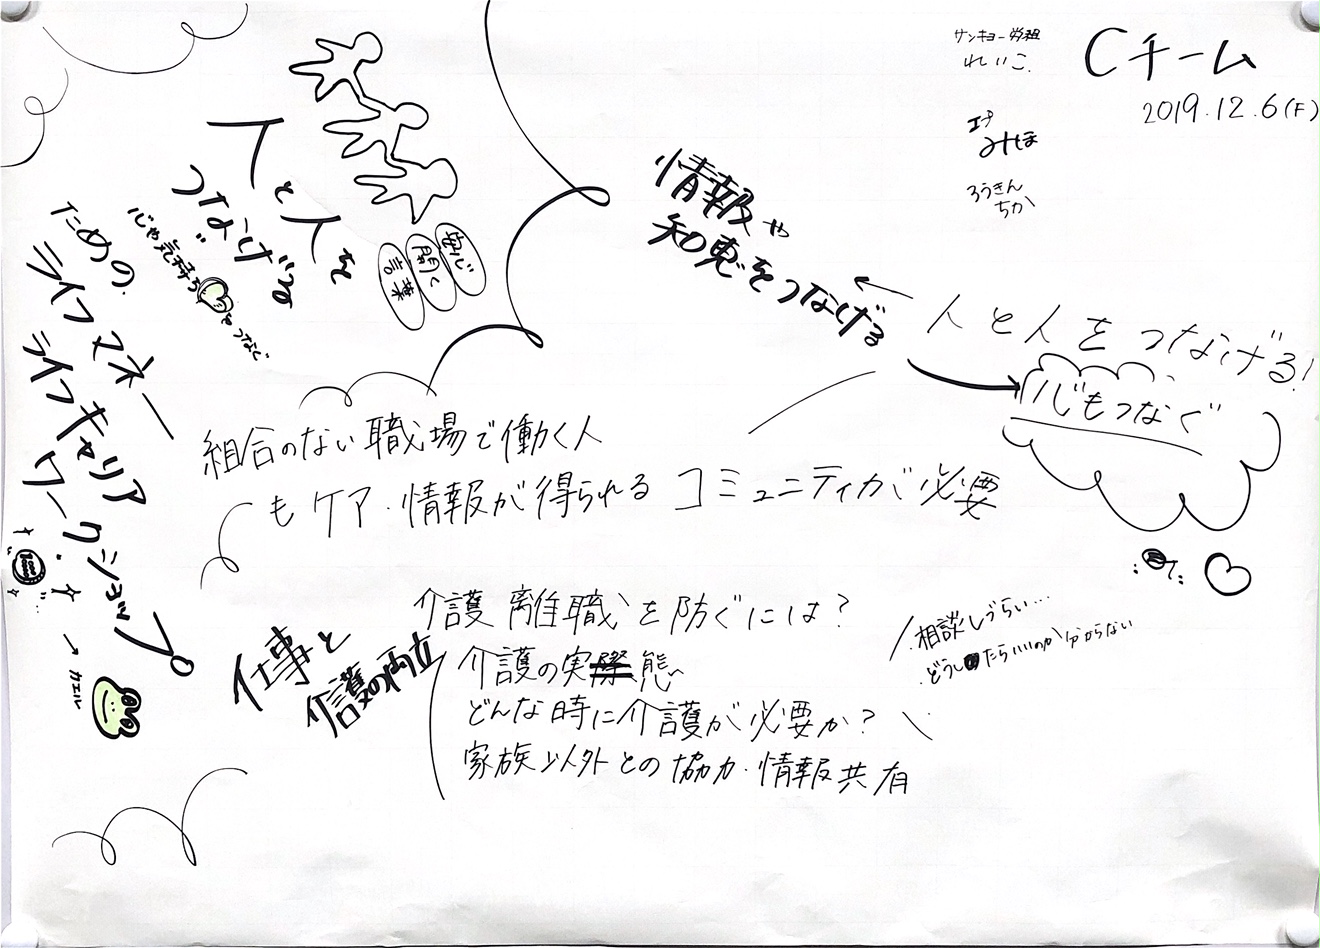 Cチーム
2019.12.6(F)
サンキョー労組
れいこ
エナ
みほ
ろうきん
ちか
人と人を
つなげる
心や気持ち
をつなぐ
ための
ライフマネー
ライフキャリア
ワークショップ。
→カエル
感じ
聞く
言葉
情報や
知恵をつなげる
人と人をつなげる!
心もつなぐ
組合のない職場で働く人
もケア・情報が得られるコミュニティが必要
介護離職を防ぐには?
仕事と
介護の両立
介護の実態
どんな時に介護が必要か?
家族以外との協力・情報共有
・相談しづらい…
・どうしたらいいのか分からない